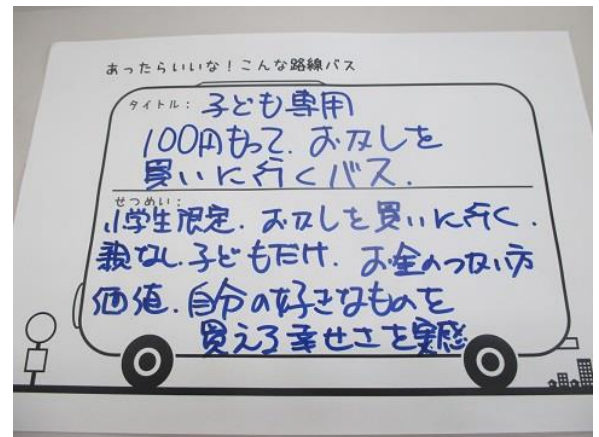 あったらいいな!こんな路線バス
タイトル: 子ども専用
100円もって.おカしを
買いに行くバス.
せつめい:
小学生限定.おカしを買いに行く.
親なし.子どもだけ.お金のつかい方
価値.自分の好きなものを
買える幸せさを実感